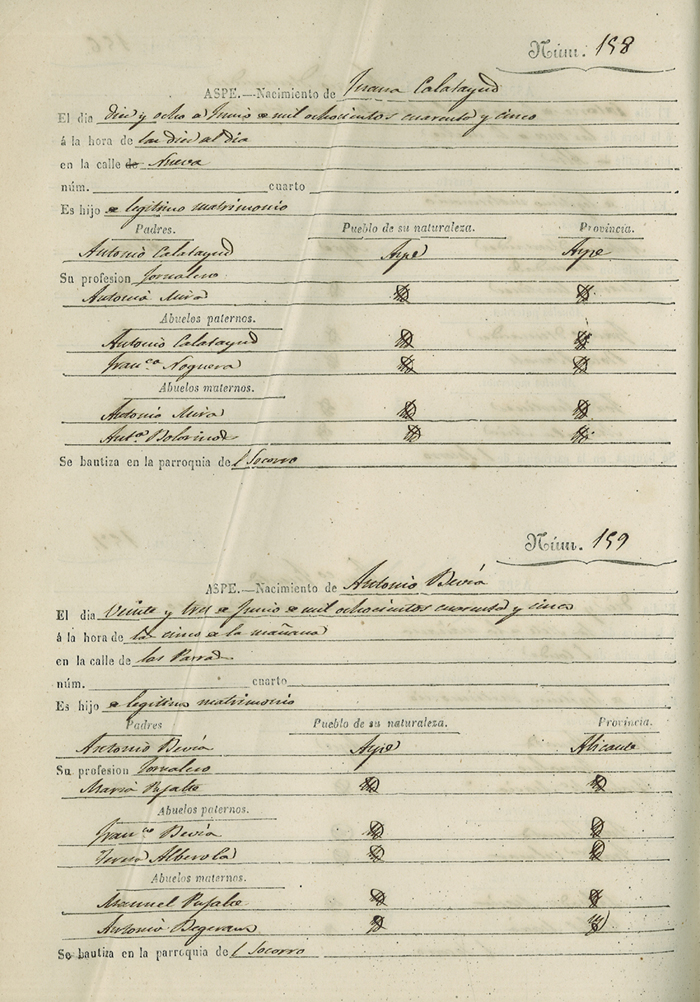 Núm. 158
ASPE.—Nacimiento de Teresa Calatayud
El dia diez y ocho de Junio de mil ochocientos cuarenta y cinco
á la hora de las diez al dia
en la calle de Nueva
núm. cuarto
Es hijo de legitimo matrimonio
Padres. Pueblo de su naturaleza. Provincia.
Antonio Calatayud Aspe Aspe
Su profesion Jornalero
Antonia Mira
Abuelos paternos.
Antonio Calatayud
Franca Noguera
Abuelos maternos.
Antonio Mira
Anta
Se bautiza en la parroquia del Socorro
Núm. 159
ASPE.—Nacimiento de Antonio Bevia
El dia Veinte y tres de Junio de mil ochocientos cuarenta y cinco
á la hora de las cinco de la mañana
en la calle de las Parras
núm. cuarto
Es hijo de legitimo matrimonio
Padres Pueblo de su naturaleza. Provincia.
Antonio Bevía Aspe Alicante
Su profesion Jornalero
Maria Pujalte
Abuelos paternos.
Franco Bevía
Teresa Alberola
Abuelos maternos.
Manuel Pujalte
Antonia
Se bautiza en la parroquia del Socorro